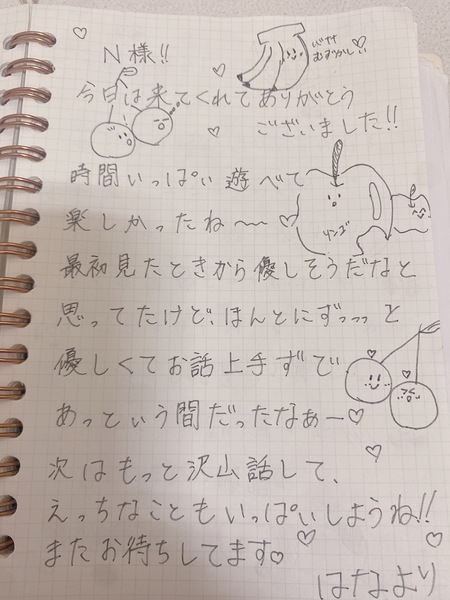 N様!!
バナナ
むずかしい
今日は来てくれてありがとう
ございました!!
時間いっぱい遊べて
楽しかったね〜〜♡
リンゴ
最初見たときから優しそうだなと
思ってたけど、ほんとにずっっっと
優しくてお話上手ずで
あっという間だったなぁー♡
次はもっと沢山話して、
えっちなこともいっぱいしようね!!
またお待ちしてます♡
はなより